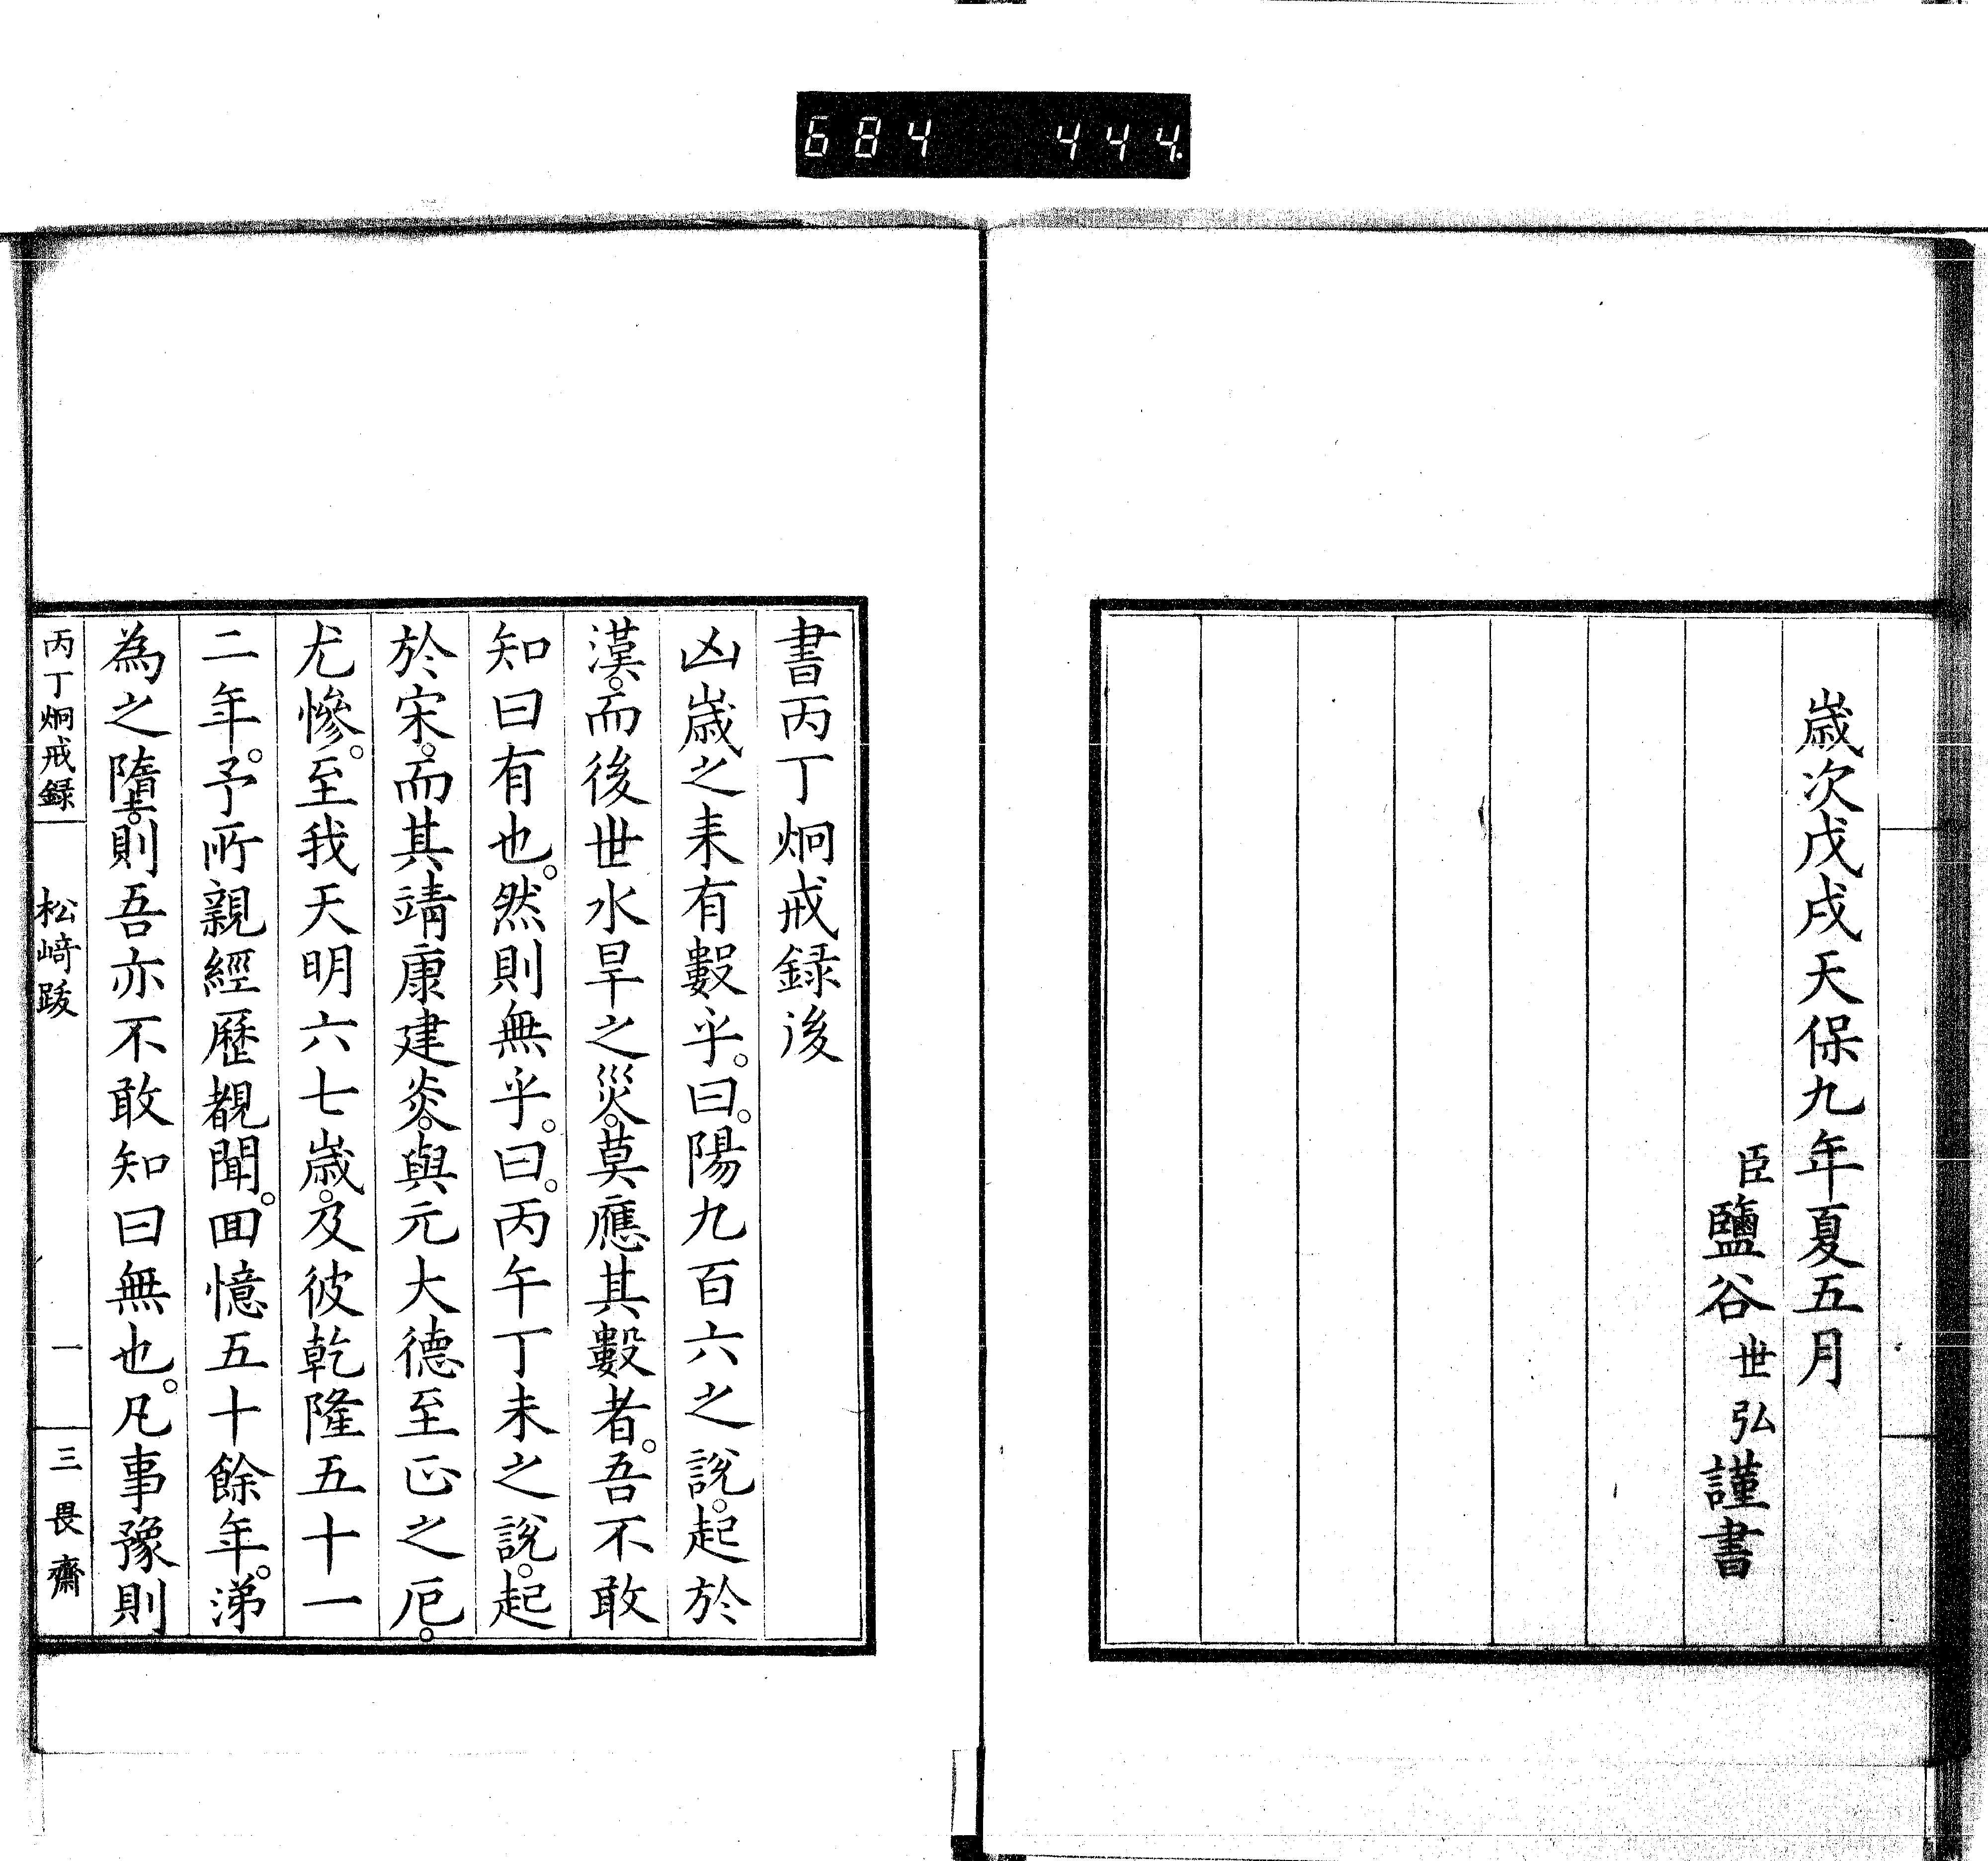 684 444.
歳次戊戌天保九年夏五月
臣鹽谷世弘謹書
書丙丁炯戒録後
凶歳之来有數乎。曰。陽九百六之説。起於
漢。而後世水旱之災。莫應其數者。吾不敢
知曰有也。然則無乎。曰。丙午丁未之説。起
於宋。而其靖康建炎。與元大德至正之厄。
尤慘。至我天明六七歳。及彼乾隆五十一
二年。予所親經歷覩聞。囬憶五十餘年。涕
為之隨。則吾亦不敢知曰無也。凡事豫則
丙丁炯戒録 松﨑跋 一 三畏齋